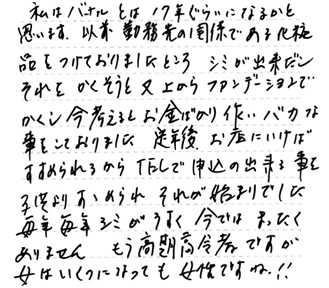 私はバナルとは17年ぐらいになるかと
思います。以前勤務先の関係である化粧
品をつけておりましたところ シミが出来だし
それをかくそうと又上からファンデーションで
かくし今考えるとお金ばかり使いバカな
事をしておりました 定年後 お店にいけば
すすめられるからTELで申込の出来る事を
子供よりすゝめられ それが始まりでした
毎年毎年シミがうすく 今では まったく
ありません もう高期高令者ですが
女はいくつになっても女性ですね.!!